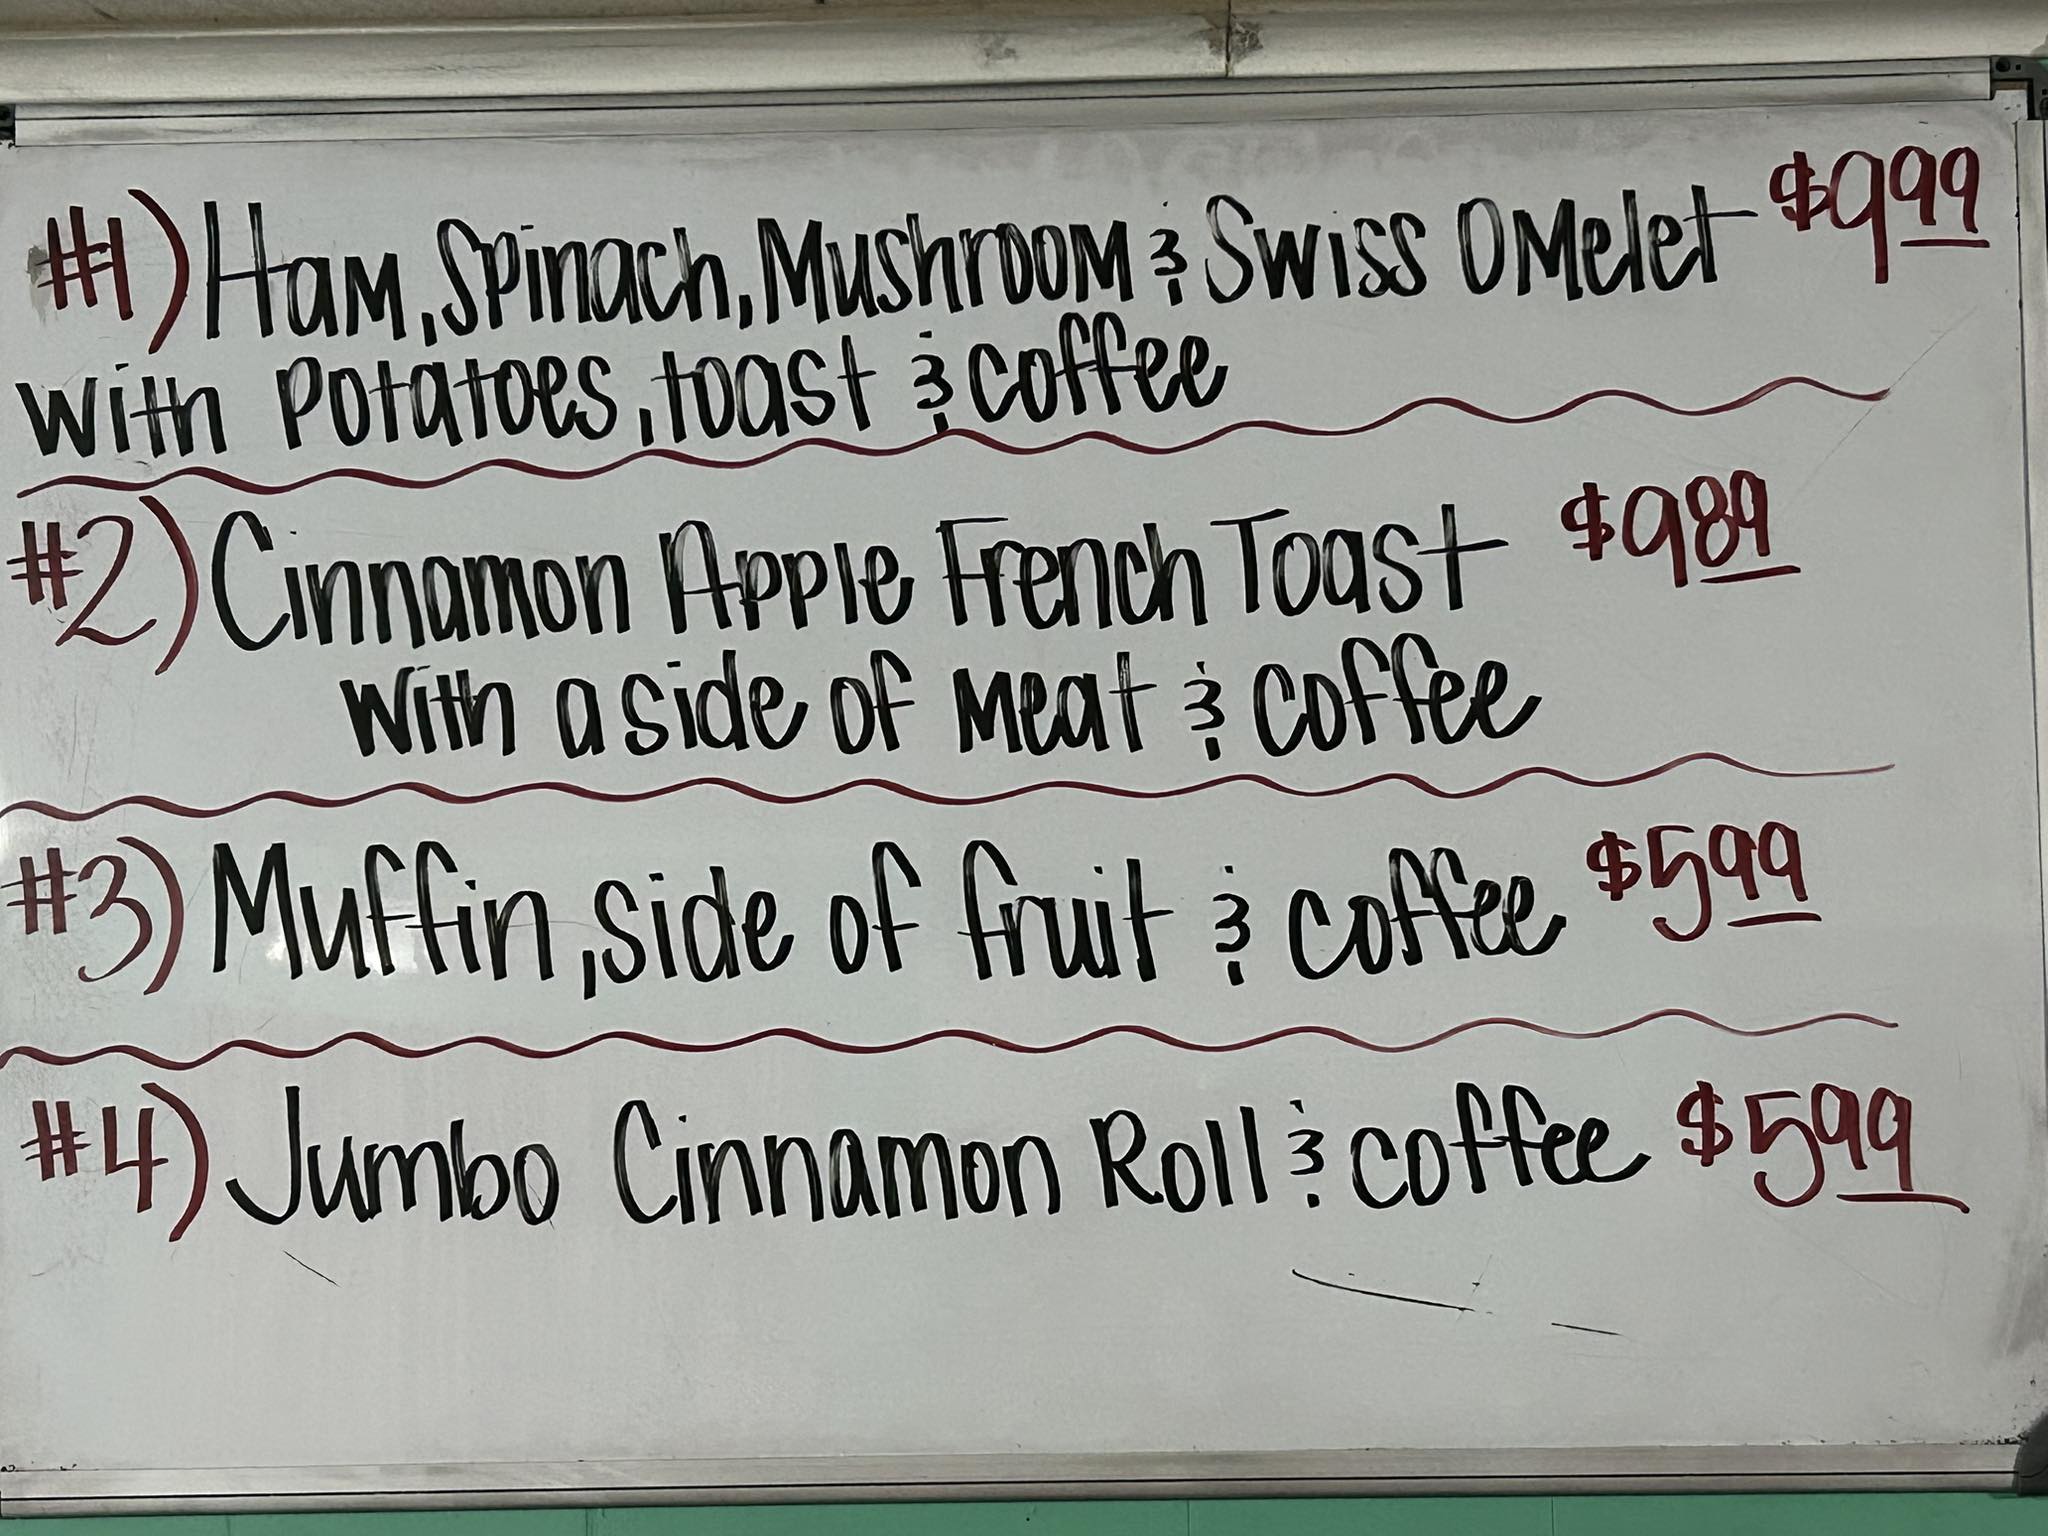 #1) Ham, Spinach, Mushroom & Swiss Omelet $9.99
with potatoes, toast & coffee
#2) Cinnamon Apple French Toast $9.89
with a side of meat & coffee
#3) Muffin, side of fruit & coffee $5.99
#4) Jumbo Cinnamon Roll & coffee $5.99